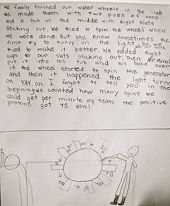 We finally finished our water wheels in the lab
We made them with two pieces of wood
and a tub in the middle with eight slats
sticking out. We tried to spin the wheel when
we were done. But you know sometimes the
first try to turn on the light
tried to make it better. We added
cups to our slats sticking out then
put it into his tub and his hose over
it the wheel started to spin the generator
and then it happened the light turned
on yay oh I forgot to tell you in the
beginning we counted how many spins we
could get per minute my team the positive
protons got 75 wow!